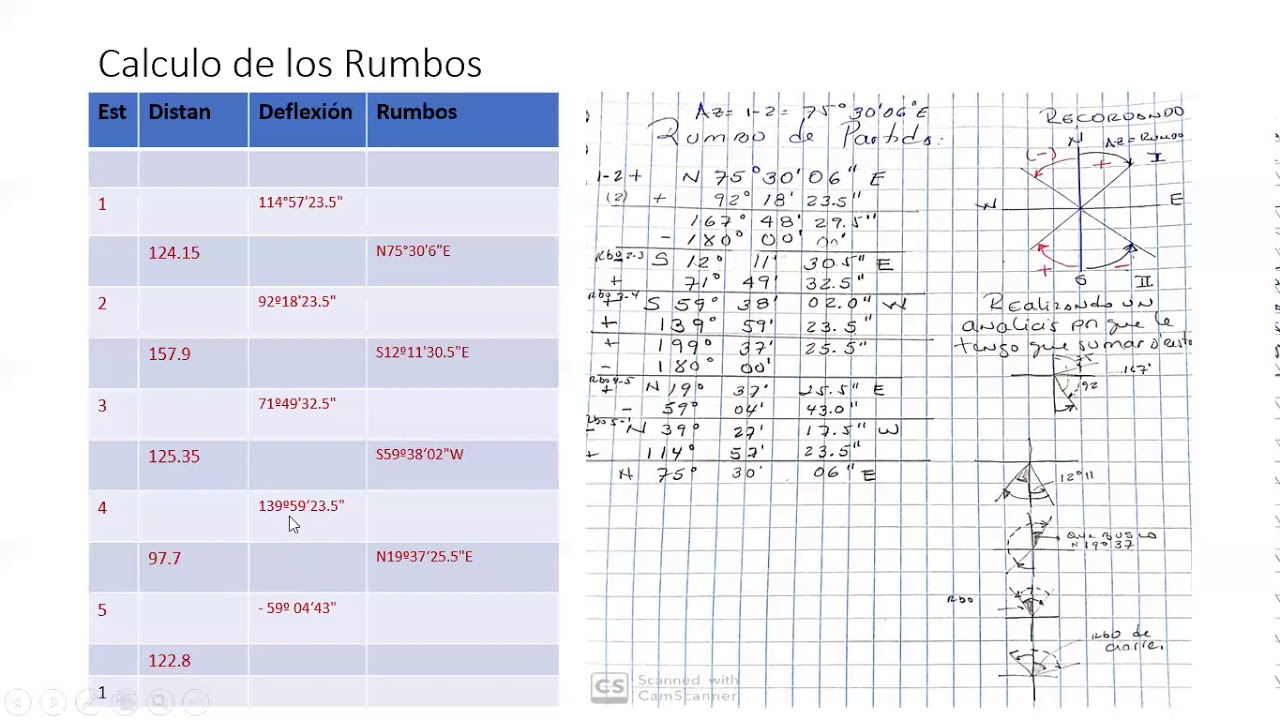 Calculo de los Rumbos
Est Distan Deflexión Rumbos
1 114°57'23.5"
124.15 N75°30'6"E
2 92º18'23.5"
157.9 S12º11'30.5"E
3 71º49'32.5"
125.35 S59º38'02"W
4 139º59'23.5"
97.7 N19º37'25.5"E
5 - 59º 04'43"
122.8
1
AZ= 1-2= 75° 30'06"E
Rumbo de Partida:
1-2+ N 75°30'06" E
(2) + 92° 18' 23.5"
167° 48' 29.5"
- 180° 00' 00"
Rbo 2-3 S 12° 11' 30.5" E
+ 71° 49' 32.5"
Rbo 3-4 S 59° 38' 02.0" W
+ 139° 59' 23.5"
+ 199° 37' 25.5"
- 180° 00'
Rbo 4-5 N 19° 37' 25.5" E
+
- 59° 04' 43.0"
Rbo 5-1 N 39° 27' 17.5" W
+ 114° 57' 23.5"
N 75° 30' 06" E
RECORDANDO
N
AZ=Rumbo
(-) + I
W E
+ S - II
Realizando un
analicis pn que le
tengo que sumar o
75
167°
92
12°11
N19°37
Rbo
Rbo de
cierre.
CS Scanned with
CamScanner